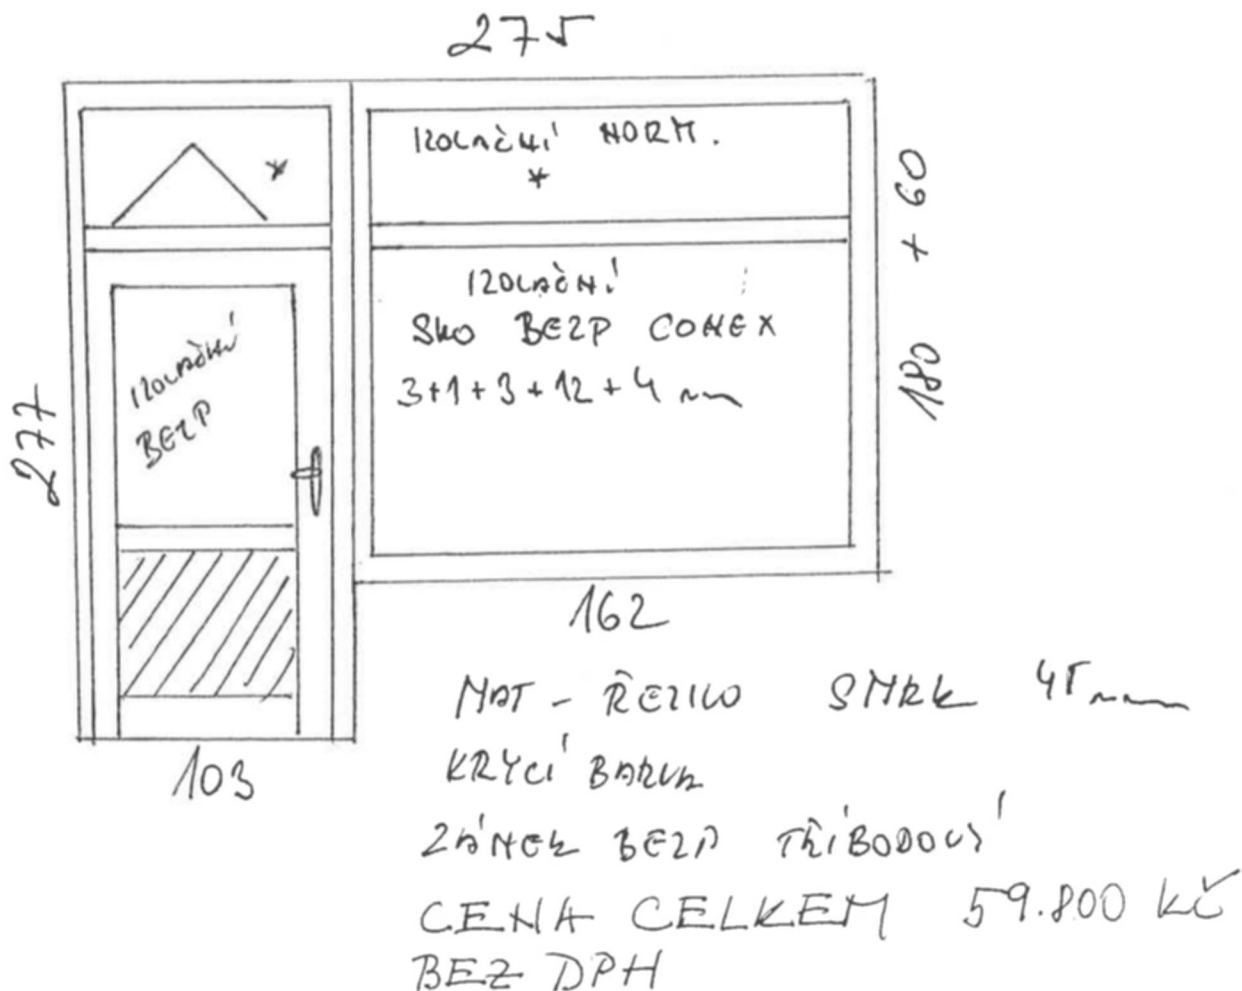 275
IZOLAČNÍ NORM.
*
*
+ 60
IZOLAČNÍ
SKLO BEZP CONEX
3+1+3+12+4 mm
180
IZOLAČNÍ
BEZP
277
162
103
MAT - ŘEZIVO SMRK 45 mm
KRYCÍ BARVA
ZÁMEK BEZP TŘÍBODOVÝ
CENA CELKEM 59.800 KČ
BEZ DPH